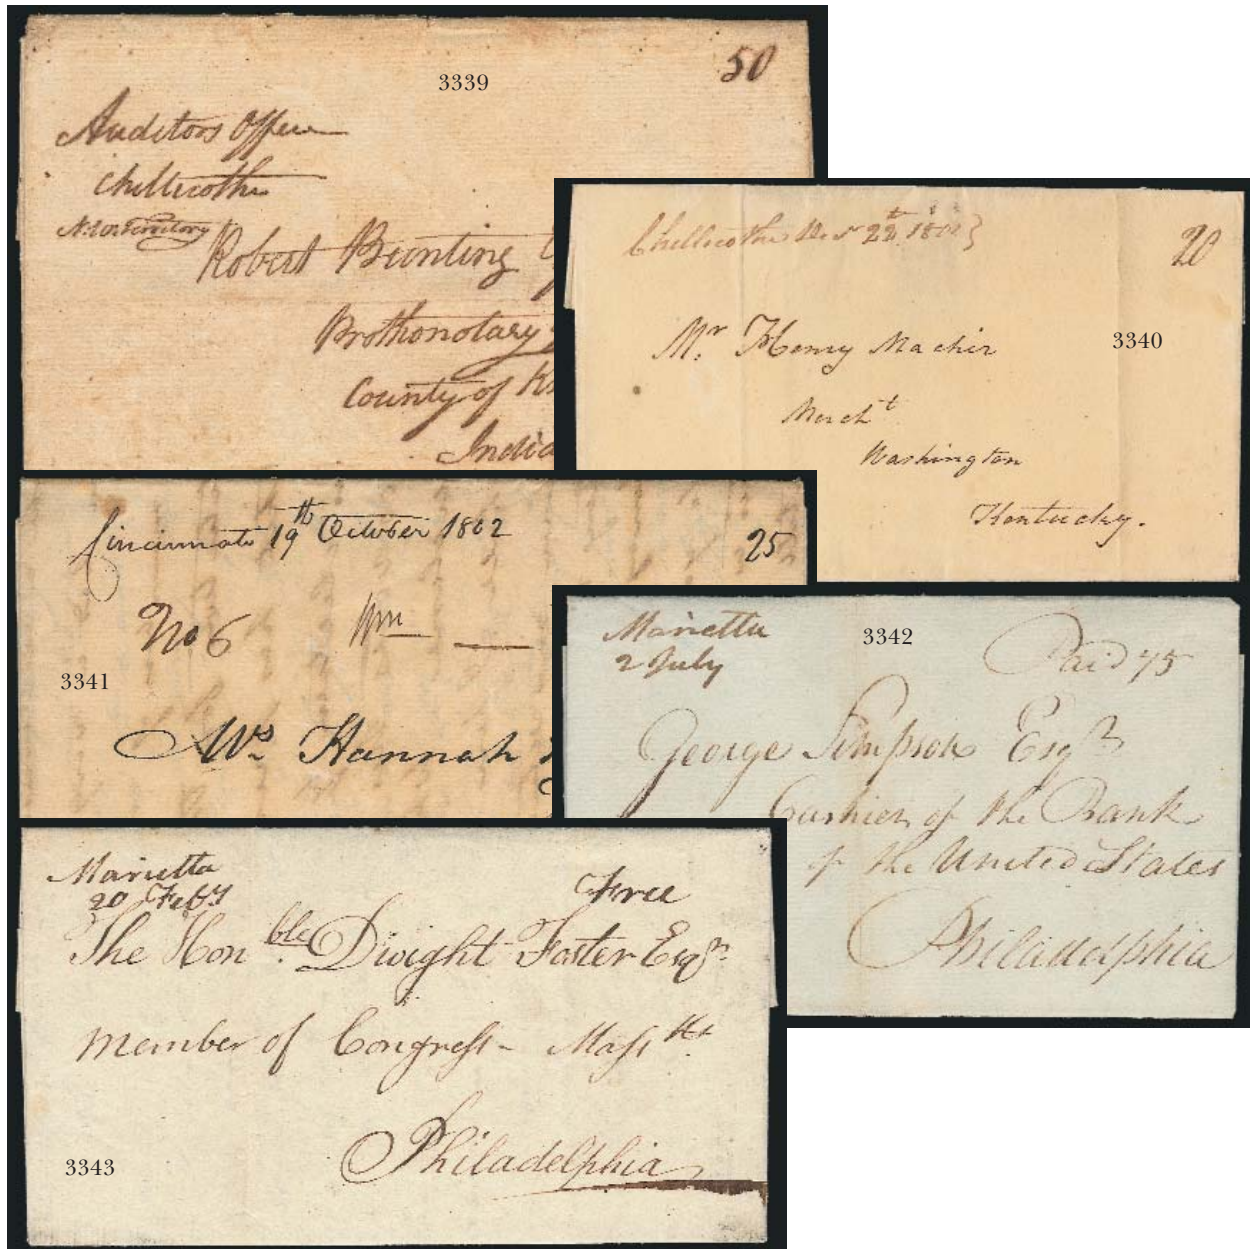 3339
50
Auditors Office
Chillicothe
N.W. Territory
Robert Bunting
Prothonotary
County of
India
Chillicothe 22t 1802}
20
Mr. Henry Machir
3340
Mercht
Washington
Kentucky.
Cincinnati 19th October 1802
25
No 6 Wm
3341
Mrs. Hannah
Marietta
2 July
3342
Paid 75
George Simpson Esqr
Cashier of the Bank
of the United States
Philadelphia
Marietta
20 Feby
Free
The Honble. Dwight Foster Esqr
member of Congress - Mass
Philadelphia
3343